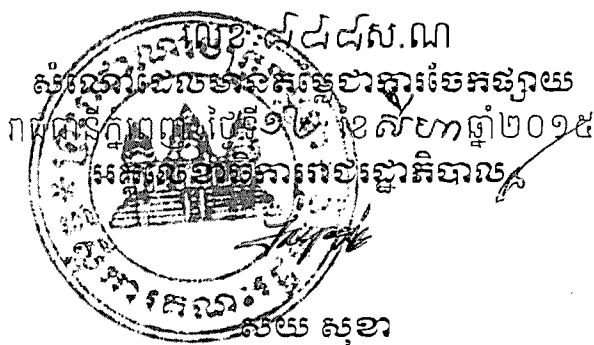 លេខ: ៨៨៨ស.ណ
សំណៅដែលមានតម្លៃជាការចែកផ្សាយ
រាជធានីភ្នំពេញ, ថ្ងៃទី១២ ខែសីហាឆ្នាំ២០១៥
អគ្គលេខាធិការរាជរដ្ឋាភិបាល
សយ សុខា